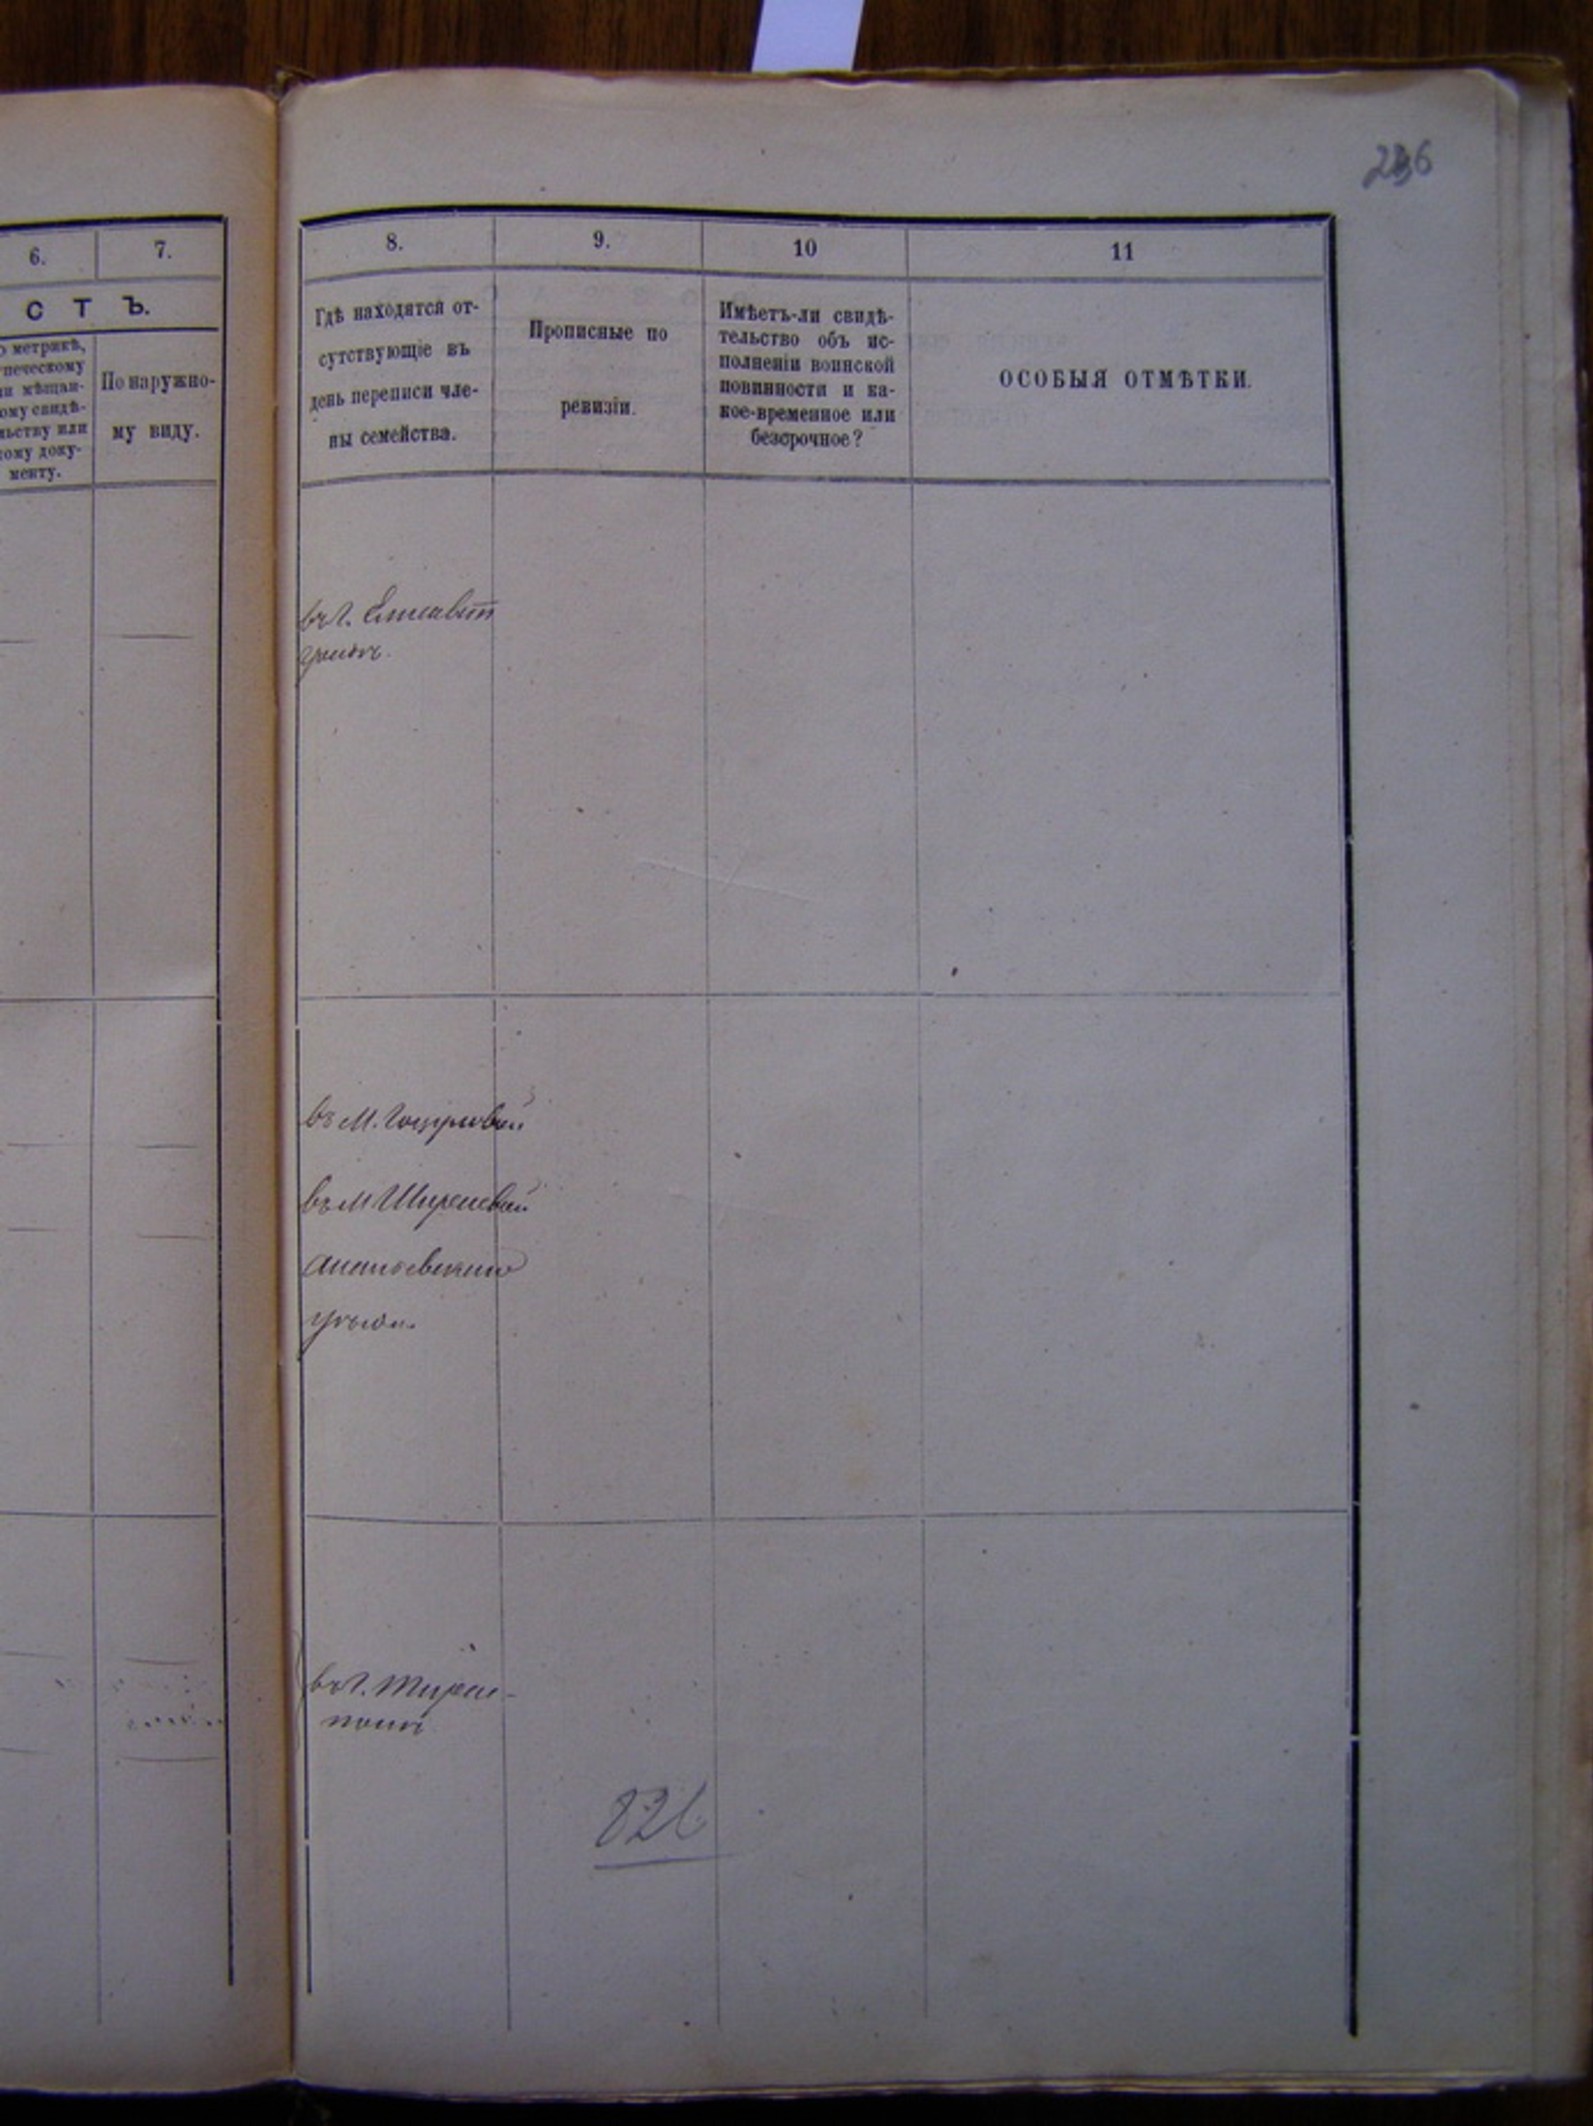 236
6.
7.
С Т Ъ.
о метрикѣ,
мѣщан-
ому свидѣ-
льству или
кому доку-
менту.
По наружно-
му виду.
8.
9.
10
11
Гдѣ находятся от-
сутствующіе въ
день переписи чле-
ны семейства.
Прописные по
ревизіи.
Имѣетъ-ли свидѣ-
тельство объ ис-
полненіи воинской
повинности и ка-
кое-временное или
безсрочное?
ОСОБЫЯ ОТМѢТКИ.
въ г. Елисавет
градѣ.
въ М.
въ М Ширяевой
Ананьевскаго
уѣзда.
въ г. Тирас-
полѣ
826